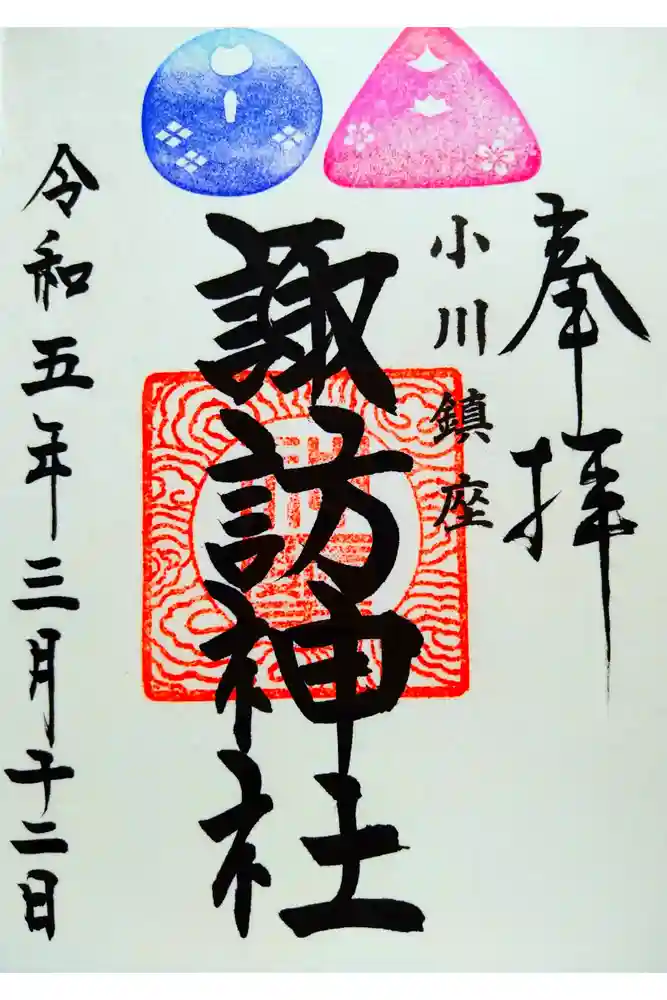 奉拝
小川鎮座
諏訪神社
令和五年三月十二日